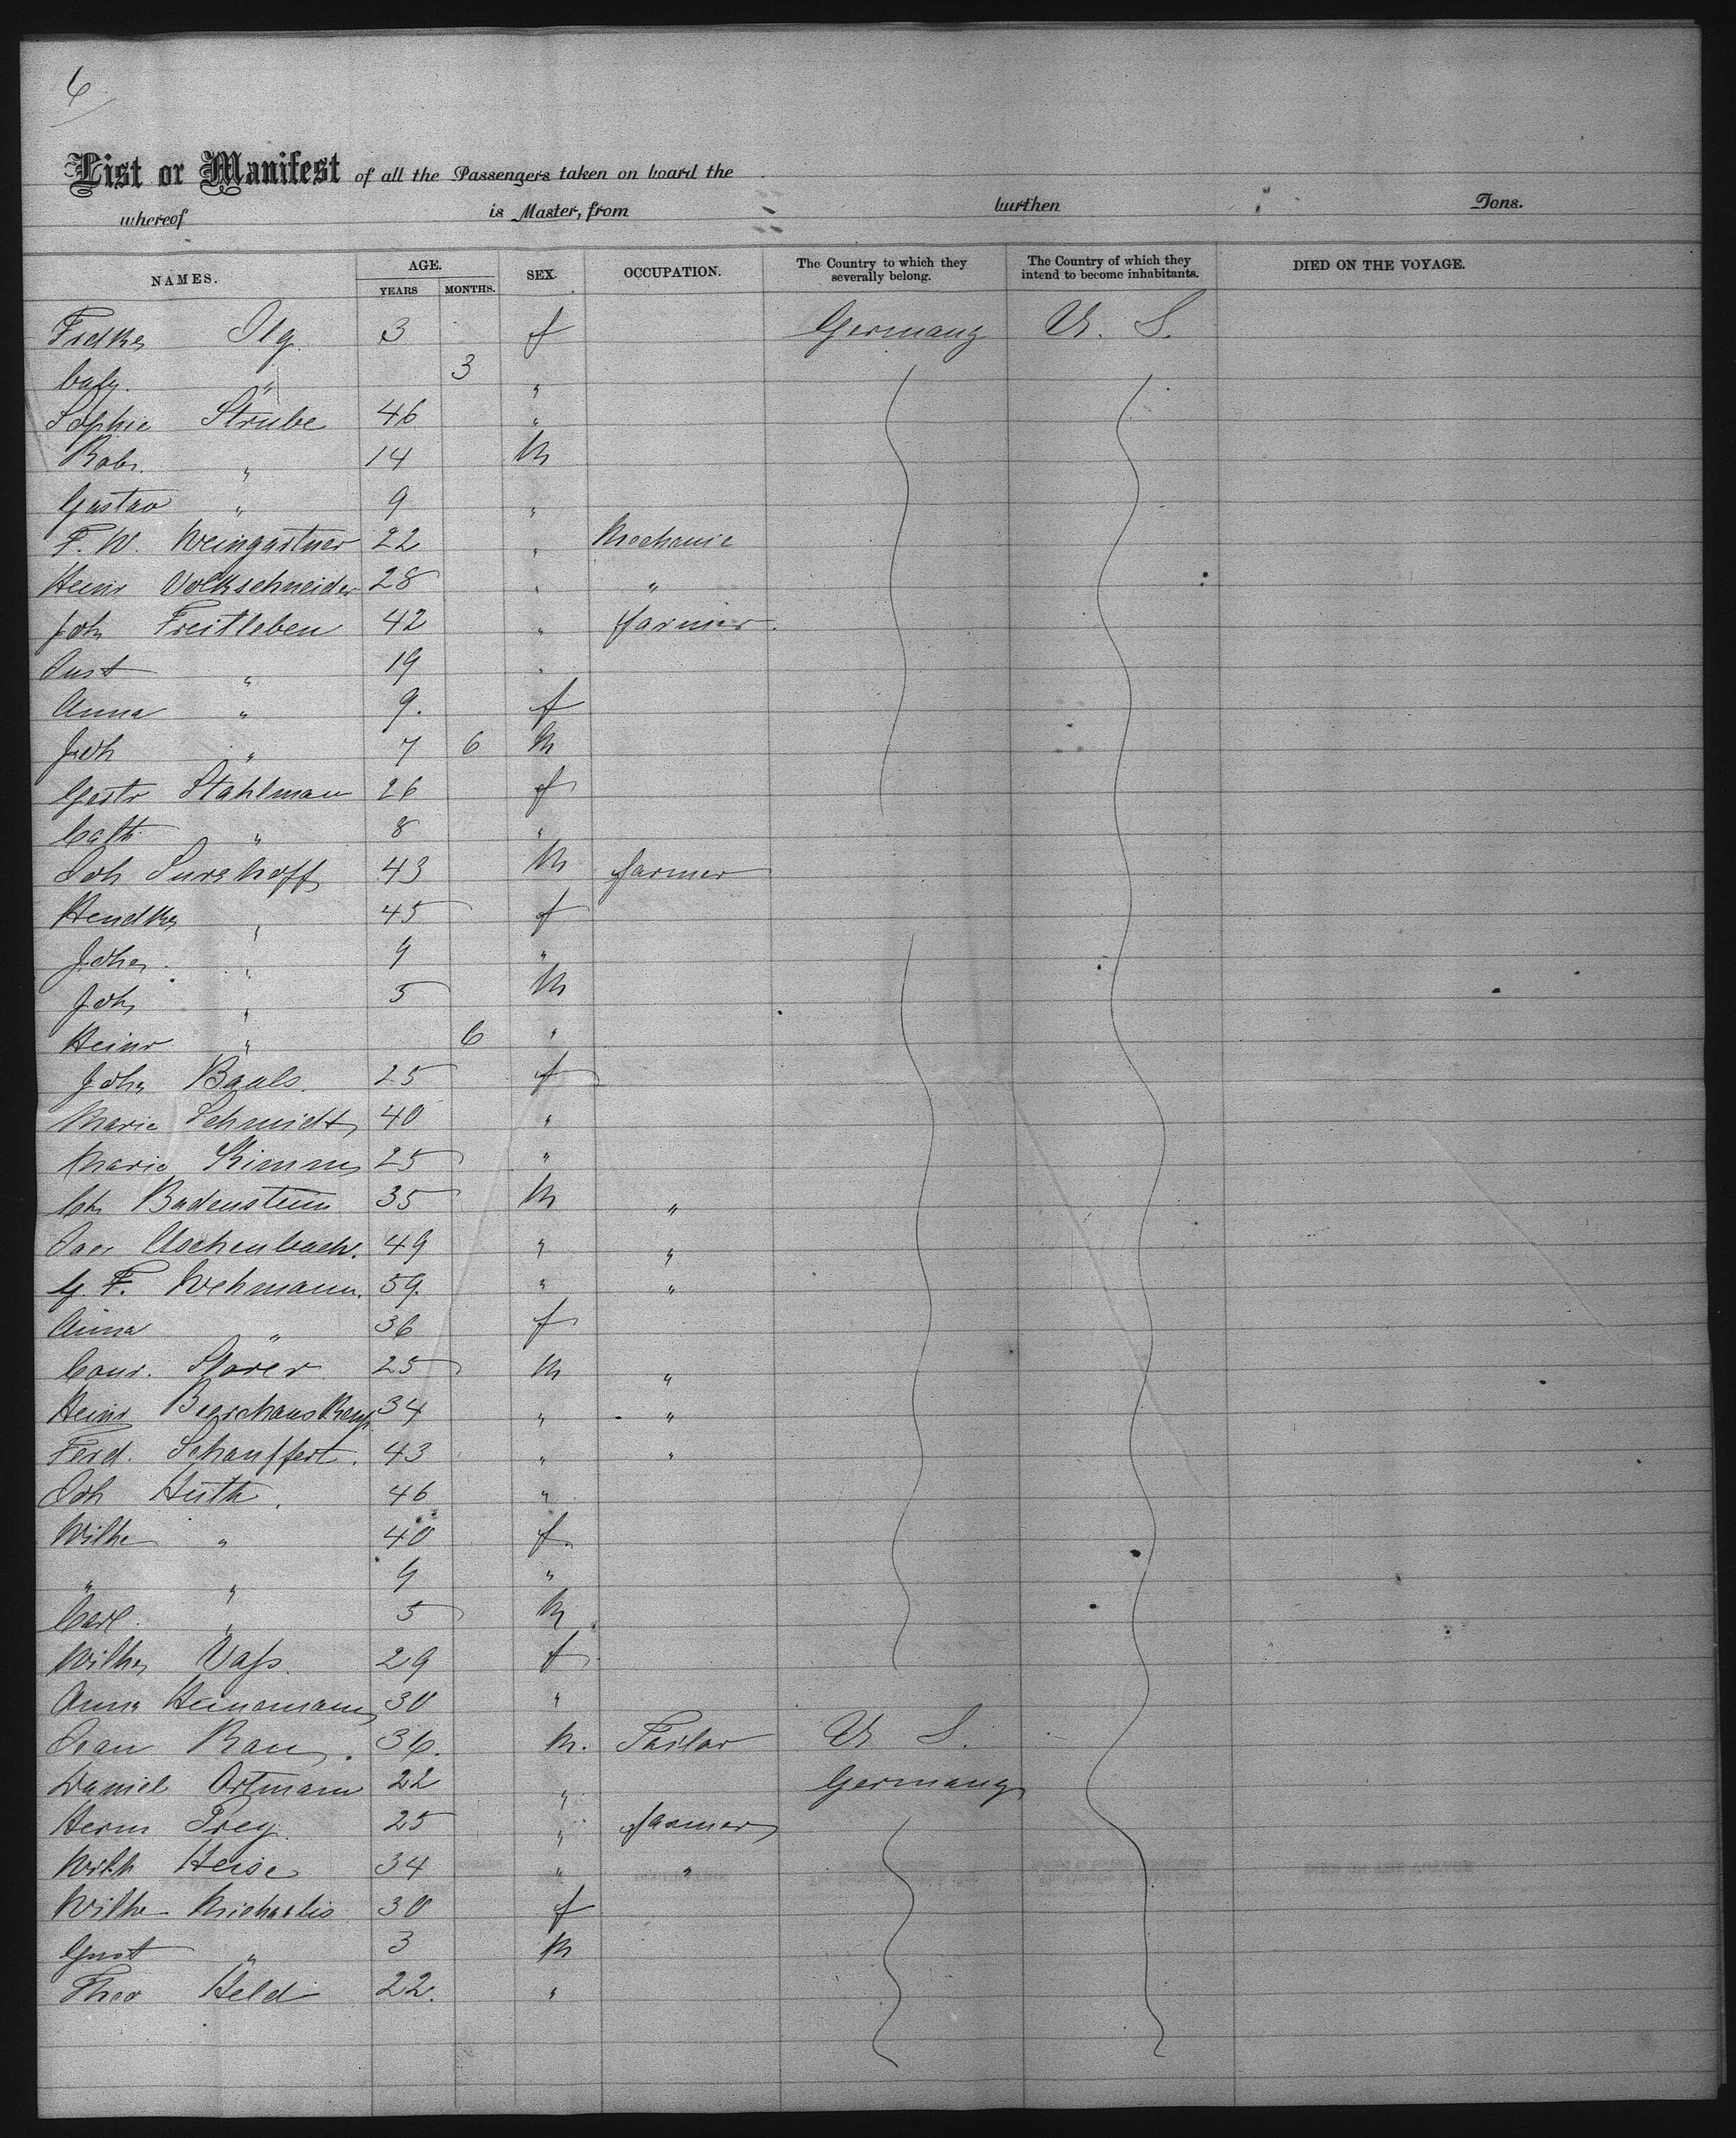 6
List or Manifest of all the Passengers taken on board the
whereof is Master, from burthen Tons.
NAMES. AGE. YEARS MONTHS. SEX. OCCUPATION. The Country to which they severally belong. The Country of which they intend to become inhabitants. DIED ON THE VOYAGE.
Fredke Ilg. 3 f Germany U. S.
" 3 "
Sophie Strube 46 "
Rob. " 14 M
Gustav " 9 "
F. W. Weingartner 22 " Mechanic
Heinr Volkschneider 28 " "
Joh Freitleben 42 " farmer
" 19 "
Anna " 9. f
Joh " 7 6 M
Stahlman 26 f
Cath " 8 "
Joh 43 M farmer
" 45 f
Johe " 9 "
Joh " 5 M
Heinr " 6 "
Joh 25 f
Marie Schmidt 40 "
Marie 25 "
Ch Badenstein 35 M "
Aschenbach. 49 " "
G. F. Wehmann. 59. " "
Anna " 36 f
Conr. Storer 25 M "
Heinr 34 " "
Ferd. Schauffert. 43 " "
Joh Huth. 46 "
Wilhe " 40 f
" " 9 "
Carl. " 5 M
Wilhe Vass. 29 f
Anna Heinemann 30 "
Rau. 36. M. Tailor U S.
Daniel Ortmann 22 " Germany
Herm Prey. 25 " farmer
Wilh Heise 34 " "
Wilhe Michaelis 30 f
Gust " 3 M
Theo Held 22. "